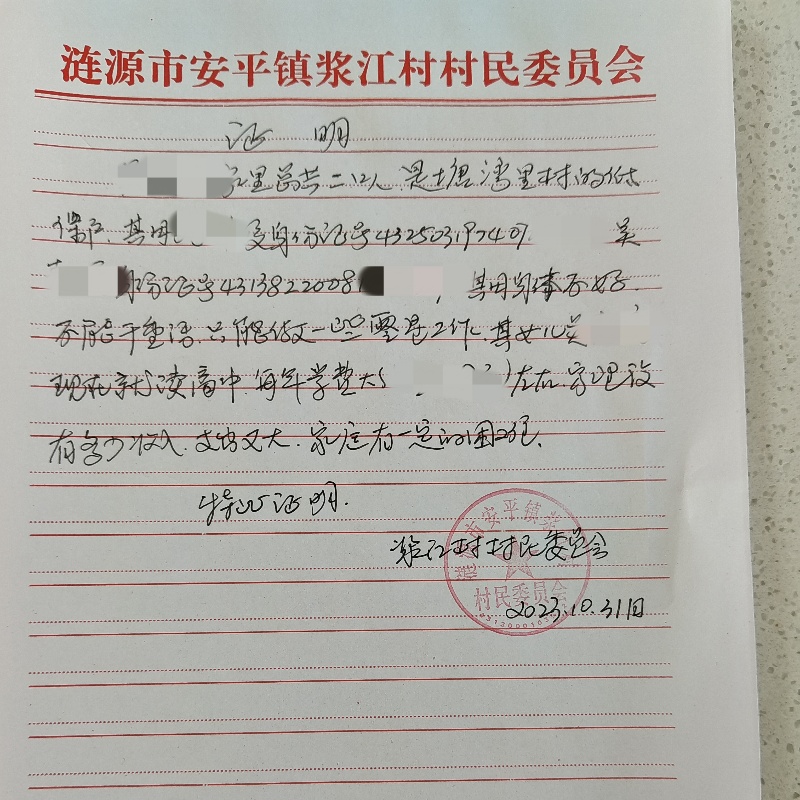 涟源市安平镇浆江村村民委员会
证 明
家里总共二口人 是塘湾里村的低
保户.其用 身份证号432503197409 吴
身份证号4313822008 ,其用身体不好.
不能干重活.只能做一些零星工作.其女儿吴
现在就读高中.每年学费大 左右.家里没
有多少收入.支出又大.家庭有一定的困难.
特此证明.
浆江村村民委员会
市安平镇浆
村民委员会
2023.10.31日